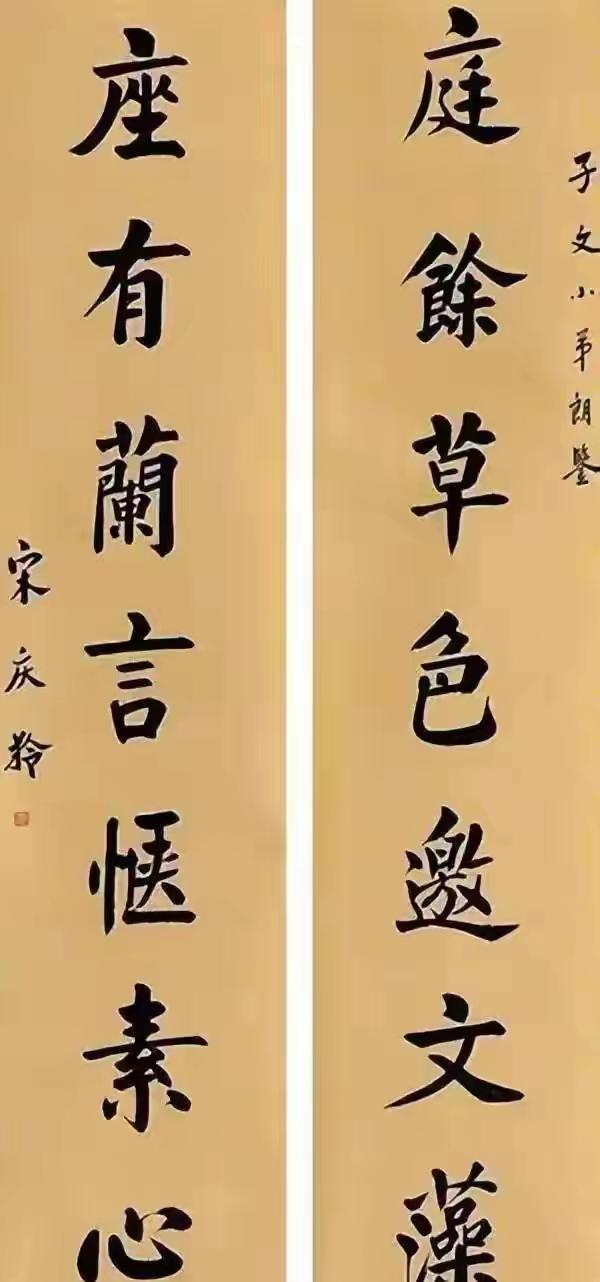 子文小弟朗鑒
庭餘草色邀文藻
座有蘭言愜素心
宋庆龄